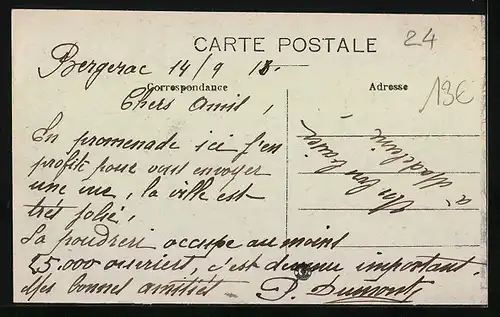 CARTE POSTALE
24
Bergerac 14/9 18.
Correspondance
Adresse
13€
Chers Amis,
En promenade ici j'en
profite pour vous envoyer
une vue, la ville est
très jolie,
La poudreri occupe au moins
25,000 ouvriers, c'est devenu important.
Mes bonnes amitiés P. Dumont
Un bon baiser
a Madeleine